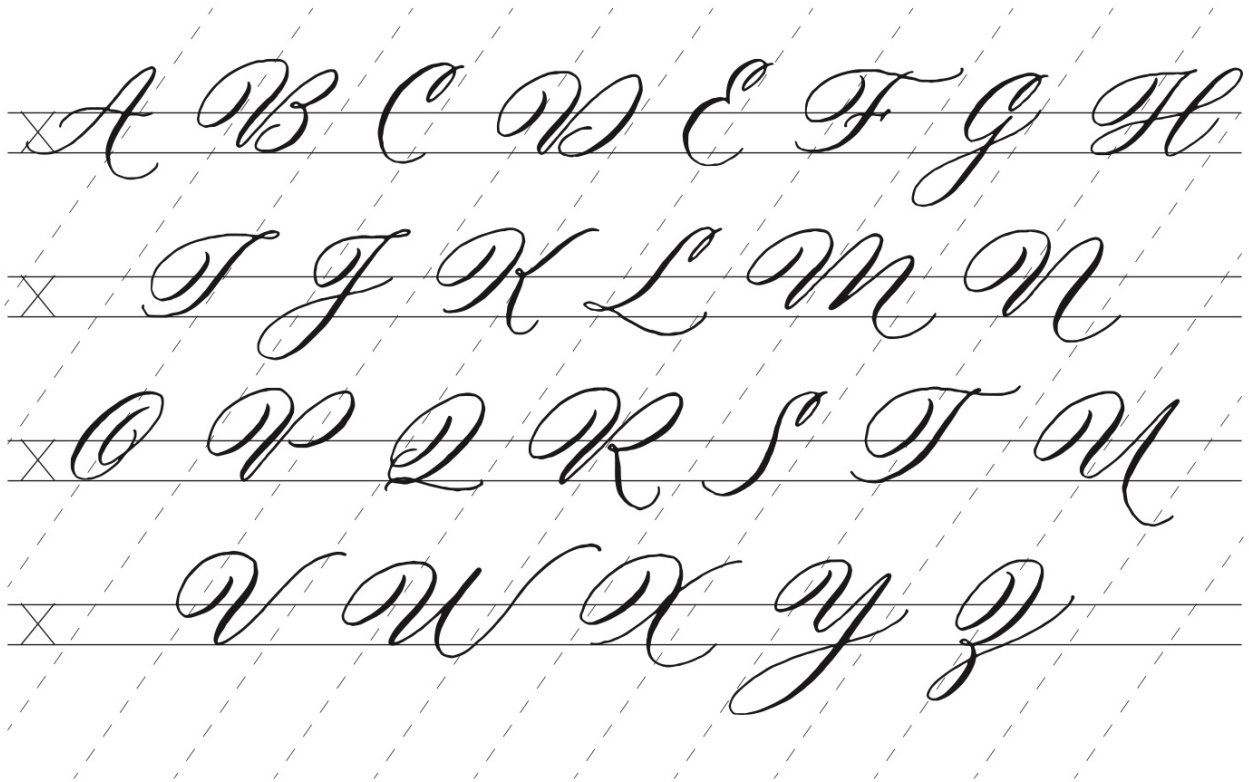 x A B C D E F G H
x I J K L M N
x O P Q R S T U
x V W X Y Z